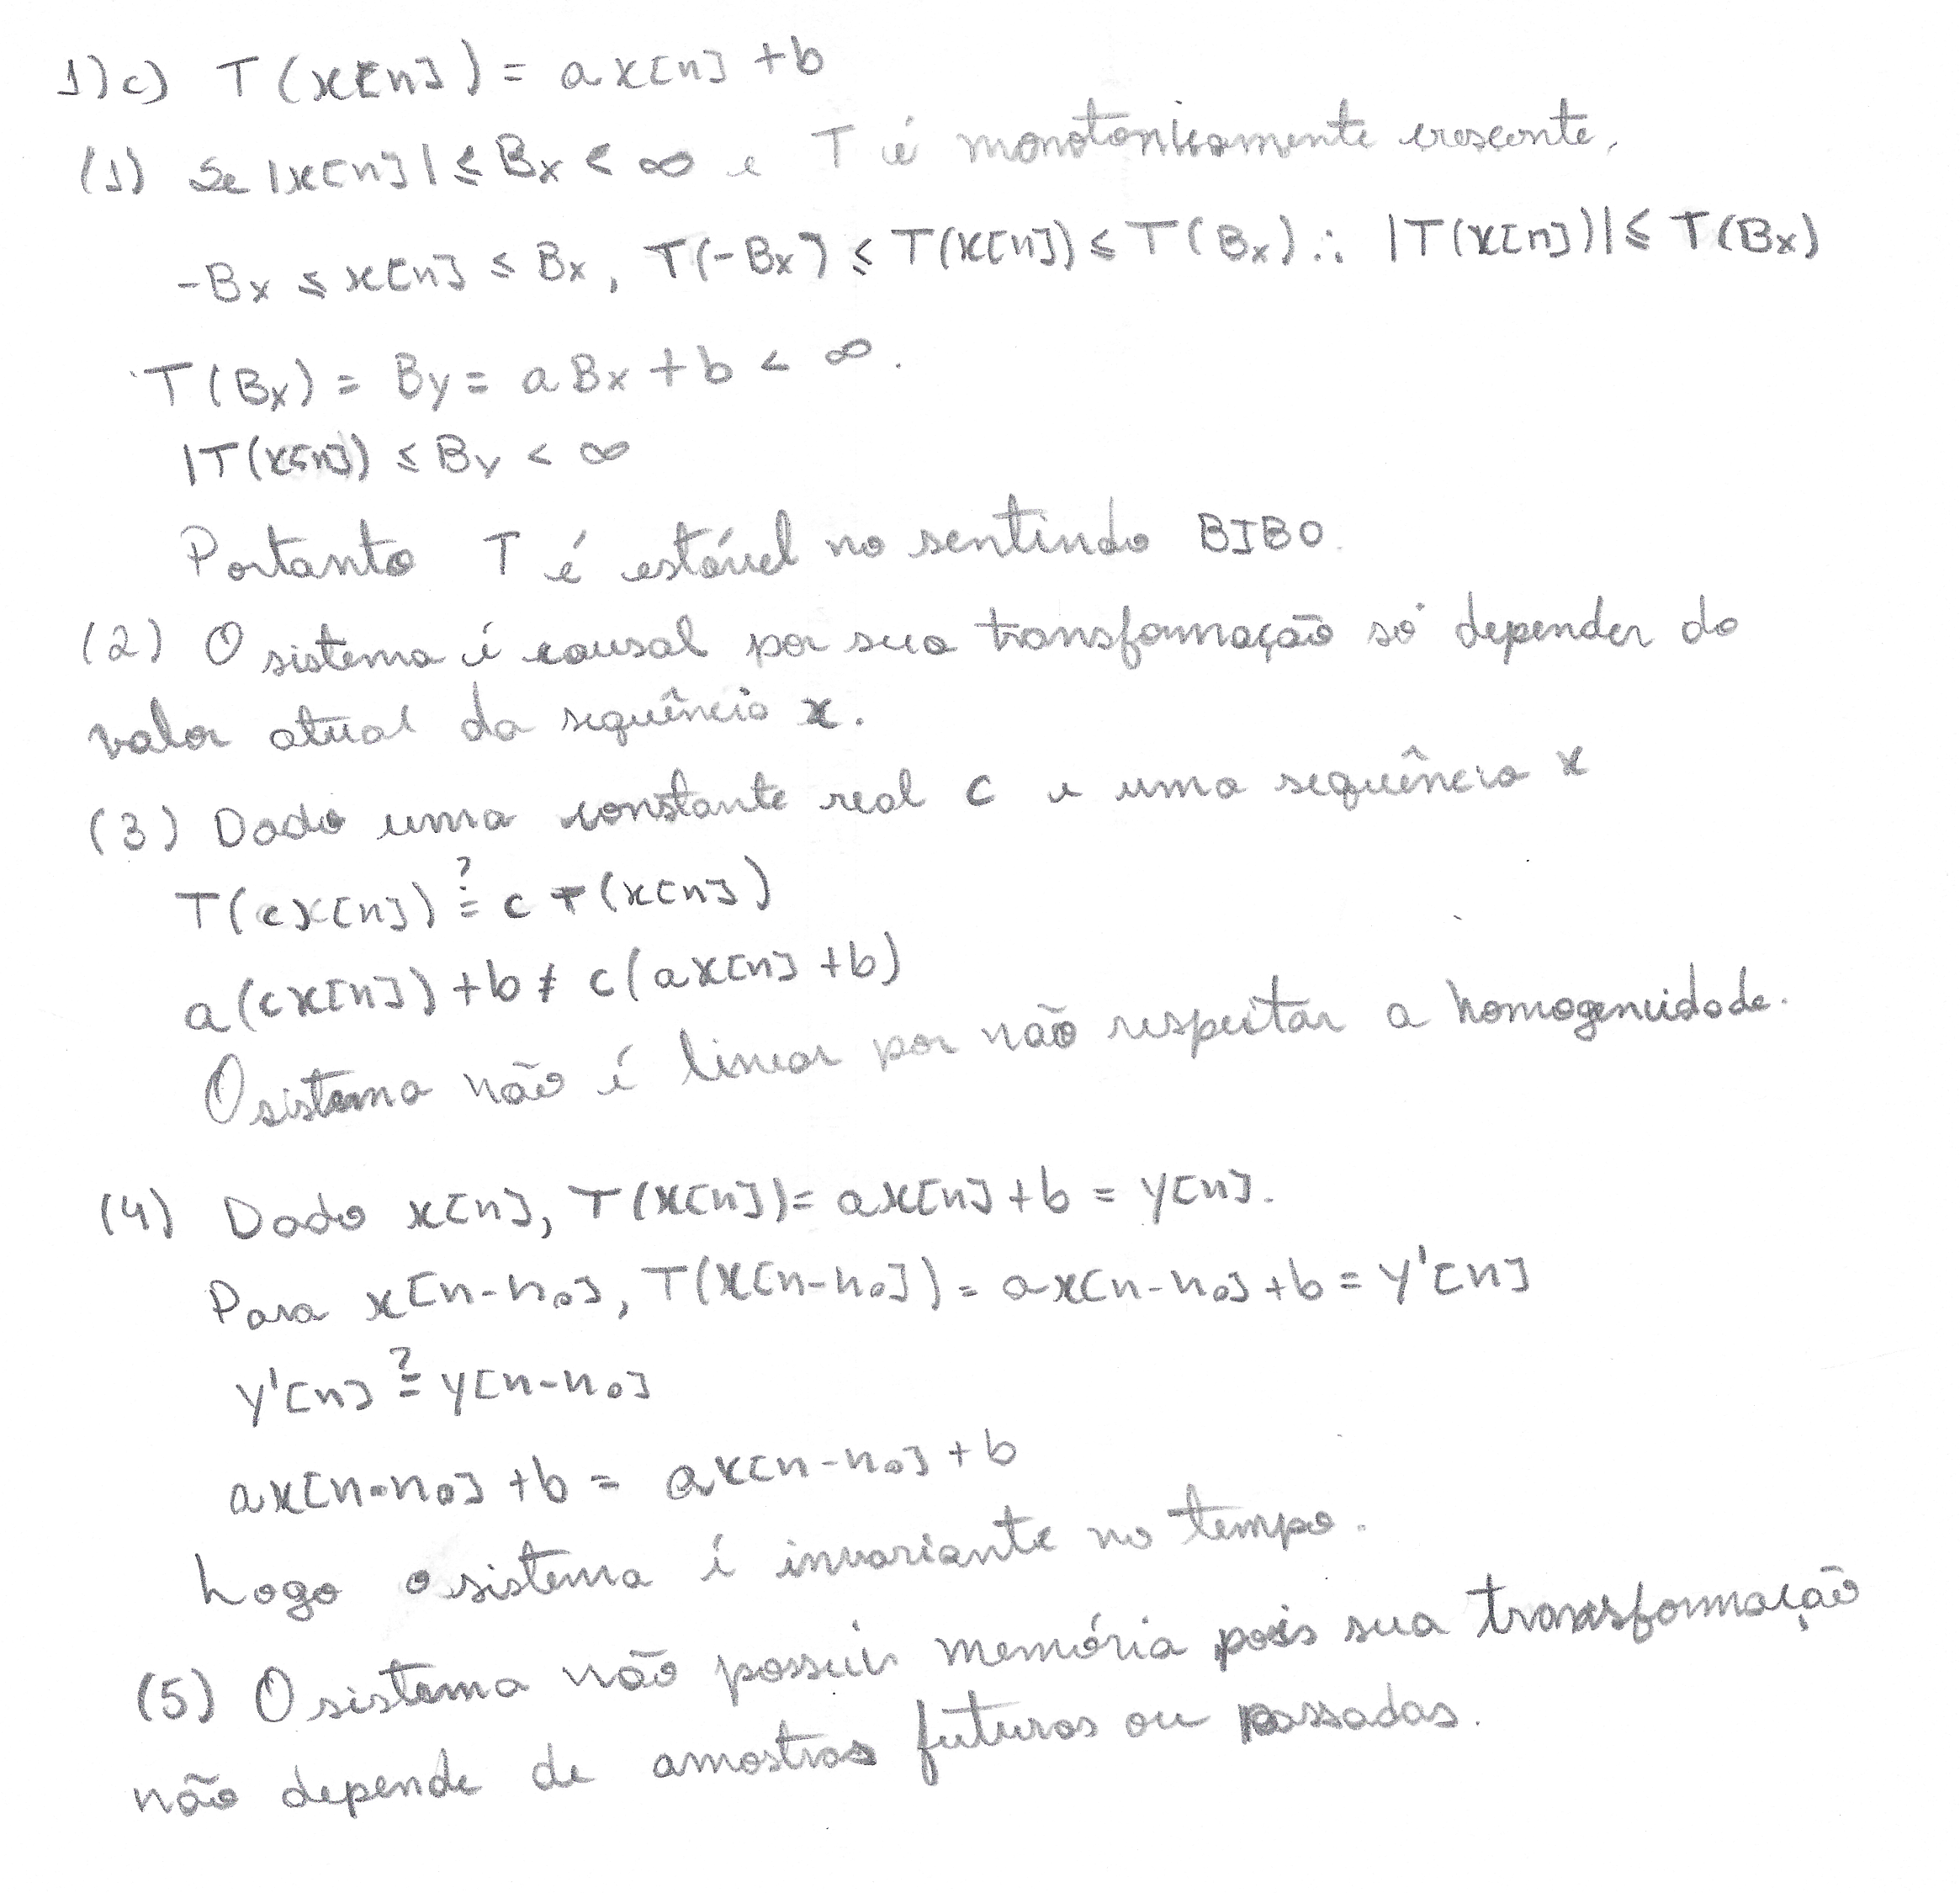 1)c) T(x[n]) = ax[n] + b
(1) Se |x[n]| ≤ Bx < ∞ e T é monotonicamente crescente,
-Bx ≤ x[n] ≤ Bx, T(-Bx) ≤ T(x[n]) ≤ T(Bx) ∴ |T(x[n])| ≤ T(Bx)
T(Bx) = By = aBx + b < ∞.
|T(x[n]) ≤ By < ∞
Portanto T é estável no sentindo BIBO.
(2) O sistema é causal por sua transformação só depender do
valor atual da sequência x.
(3) Dado uma constante real c e uma sequência x
T(cx[n]) ≟ cT(x[n])
a(cx[n]) + b ≠ c(ax[n] + b)
O sistema não é linear por não respeitar a homogeneidade.
(4) Dado x[n], T(x[n]) = ax[n] + b = y[n].
Para x[n-n₀], T(x[n-n₀]) = ax[n-n₀] + b = y'[n]
y'[n] ≟ y[n-n₀]
ax[n-n₀] + b = ax[n-n₀] + b
Logo o sistema é invariante no tempo.
(5) O sistema não possui memória pois sua transformação
não depende de amostras futuras ou passadas.